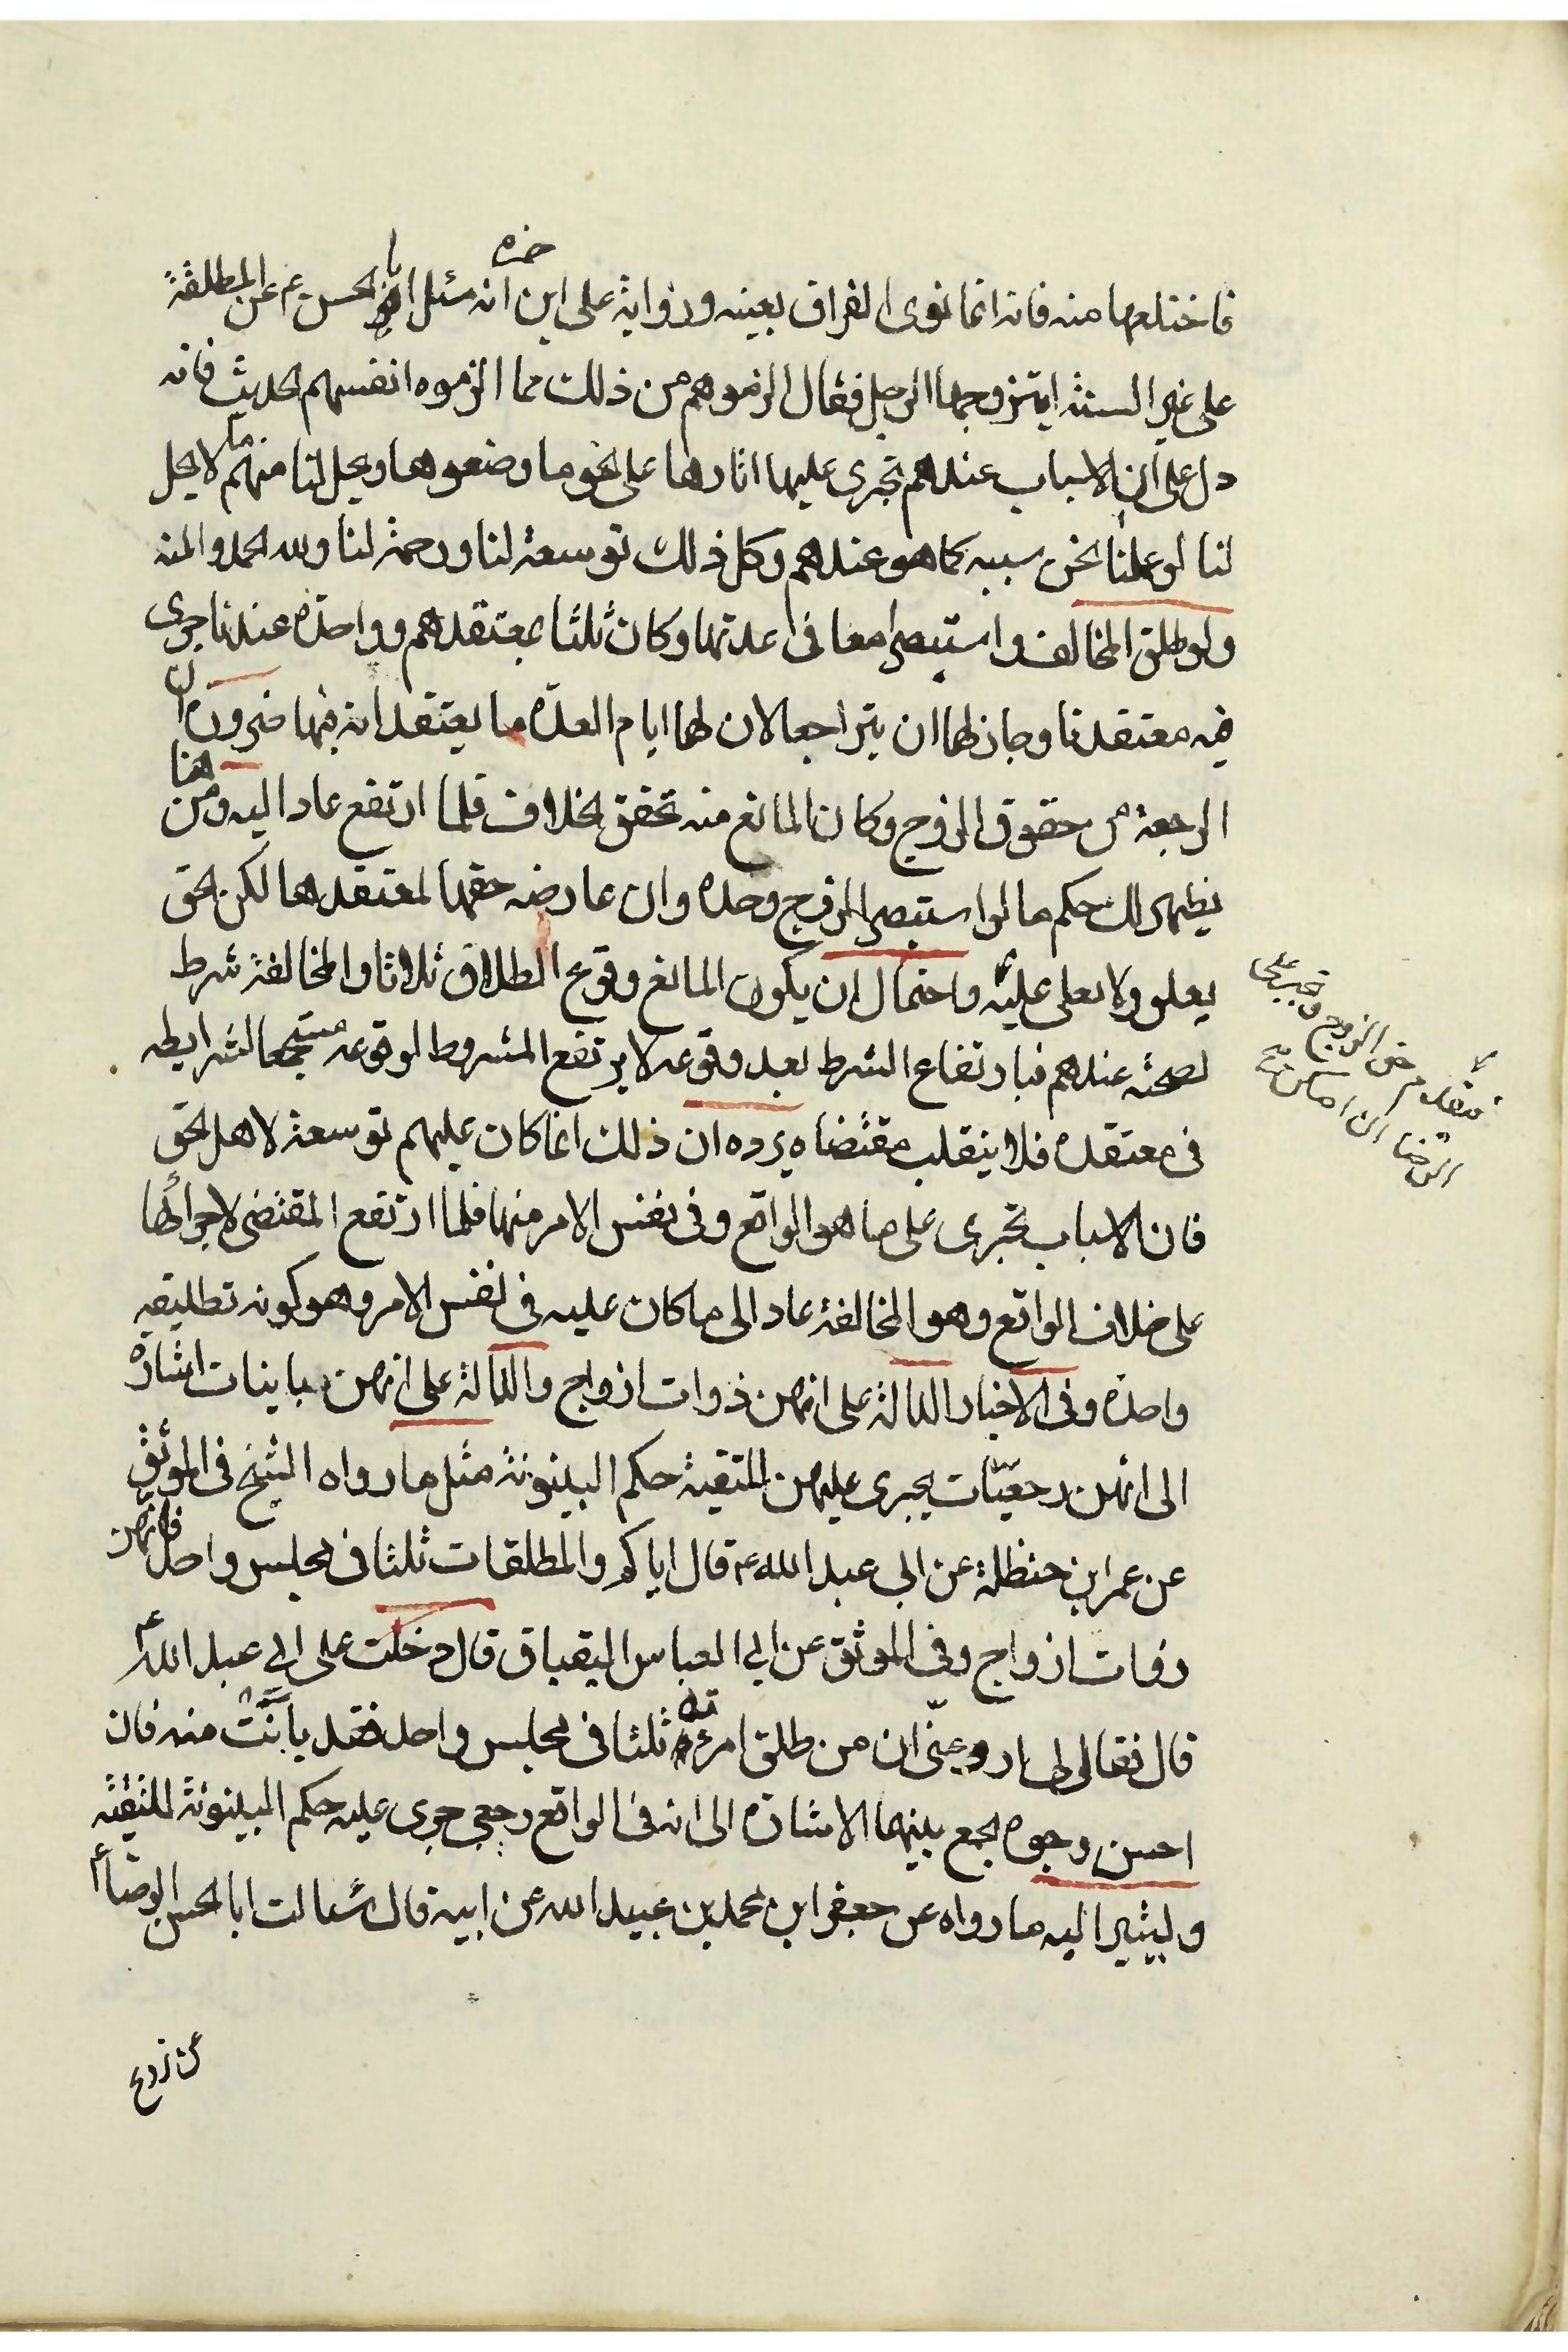 فاختلعها منه فانه انما نوى الفراق بعينه ورواية على ابن ابي حمزه انه سئل ابا الحسن ع م عن المطلقة
على غير السنة ايتزوجها الرجل فقال الزموهم من ذلك مما الزموه انفسهم الحديث فانه
دل على ان الاسباب عندهم تجرى عليها اثارها على نحو ما وضعوها ويحل لنا منهم ما لا يحل
لنا لو عملنا نحن سببه كما هو عندهم وكل ذلك توسعة لنا ورحمة لنا ولله الحمد والمنه
ولو طلق المخالف واستبصرا معا فى عدتها وكان ثلثا بمعتقدهم وواحدة عندنا جرى
فيه معتقدنا وجاز لهما ان يتراجعا لان لهما ايام العدّة ما يعتقدانه فيها ضرورة ان
الرجعة من حقوق الزوج وكان المانع منه تحقق الخلاف فلما ارتفع عاد اليه ومن هنا
يظهر لك حكم ما لو استبصر الزوج وحده وان عارضه حقها لمعتقدها لكن الحق
يعلو ولا يعلى عليه واحتمال ان يكون المانع وقوع الطلاق ثلاثا والمخالفة شرط
لصحته عندهم فبارتفاع الشرط بعد وقوعه لا يرتفع المشروط لوقوعه مستجمعا لشرايطه
فى معتقده فلا ينقلب مقتضاه يرده ان ذلك انما كان عليهم توسعة لاهل الحق
فان الاسباب تجرى على ما هو الواقع وفى نفس الامر منها فلما ارتفع المقتضى لاجرائها
على خلاف الواقع وهو المخالفة عاد الى ما كان عليه فى نفس الامر وهو كونه تطليقه
واحدة وفى الاخبار الدالة على انهن ذوات ازواج والدالة على انهن باينات اشارة
الى انهن رجعيّات يجرى عليهن للتقية حكم البينونة مثل ما رواه الشيخ فى الموثق
عن عمر ابن حنظلة عن ابى عبد الله ع قال اياكم والمطلقات ثلثا فى مجلس واحد فانهن
ذوات ازواج وفى الموثق عن ابى العباس البقباق قال دخلت على ابى عبد الله ع
قال فقال لى ارو عنّى ان من طلق امرءته ثلثا فى مجلس واحد فقد بانَتْ منه فان
احسن وجوه الجمع بينهما الاشارة الى انه فى الواقع رجعى جرى عليه حكم البينونة للتقية
ويشير اليه ما رواه عن جعفر ابن محمد بن عبيد الله عن ابيه قال سئالت ابا الحسن الرضا ع